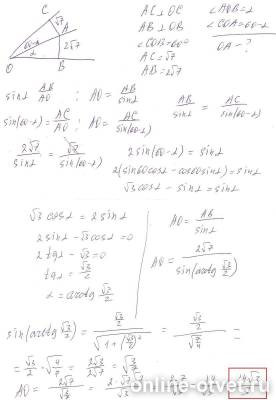 C
√7
A
60-α
2√7
α
O
B
AC⊥OC
AB⊥OB
∠COB=60°
AC=√7
AB=2√7
∠AOB=α
∠COA=60-α
OA-?
sinα = AB/AO ; AO = AB/sinα
sin(60-α) = AC/AO ; AO = AC/sin(60-α)
AB/sinα = AC/sin(60-α)
2√7/sinα = √7/sin(60-α)
2sin(60-α) = sinα
2(sin60cosα - cos60sinα) = sinα
√3cosα - sinα = sinα
√3cosα = 2sinα
2sinα - √3cosα = 0
2tgα - √3 = 0
tgα = √3/2
α = arctg √3/2
AO = AB/sinα
AO = 2√7/sin(arctg √3/2)
sin(arctg √3/2) = (√3/2)/√(1+(√3/2)²) = (√3/2)/√(7/4) =
= √3/2 · √(4/7) = 2√3/2√7 = √(3/7)
14√3/3
online-otvet.ru